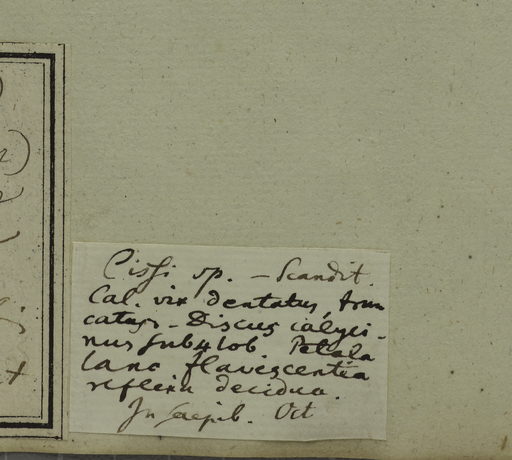 Cissi sp. – Scandit.
Cal. vix dentatus, trun
catus – Discus calyci-
nus sub4lob. Petala
lanc flavescentia
reflexa decidua.
In saepib. Oct